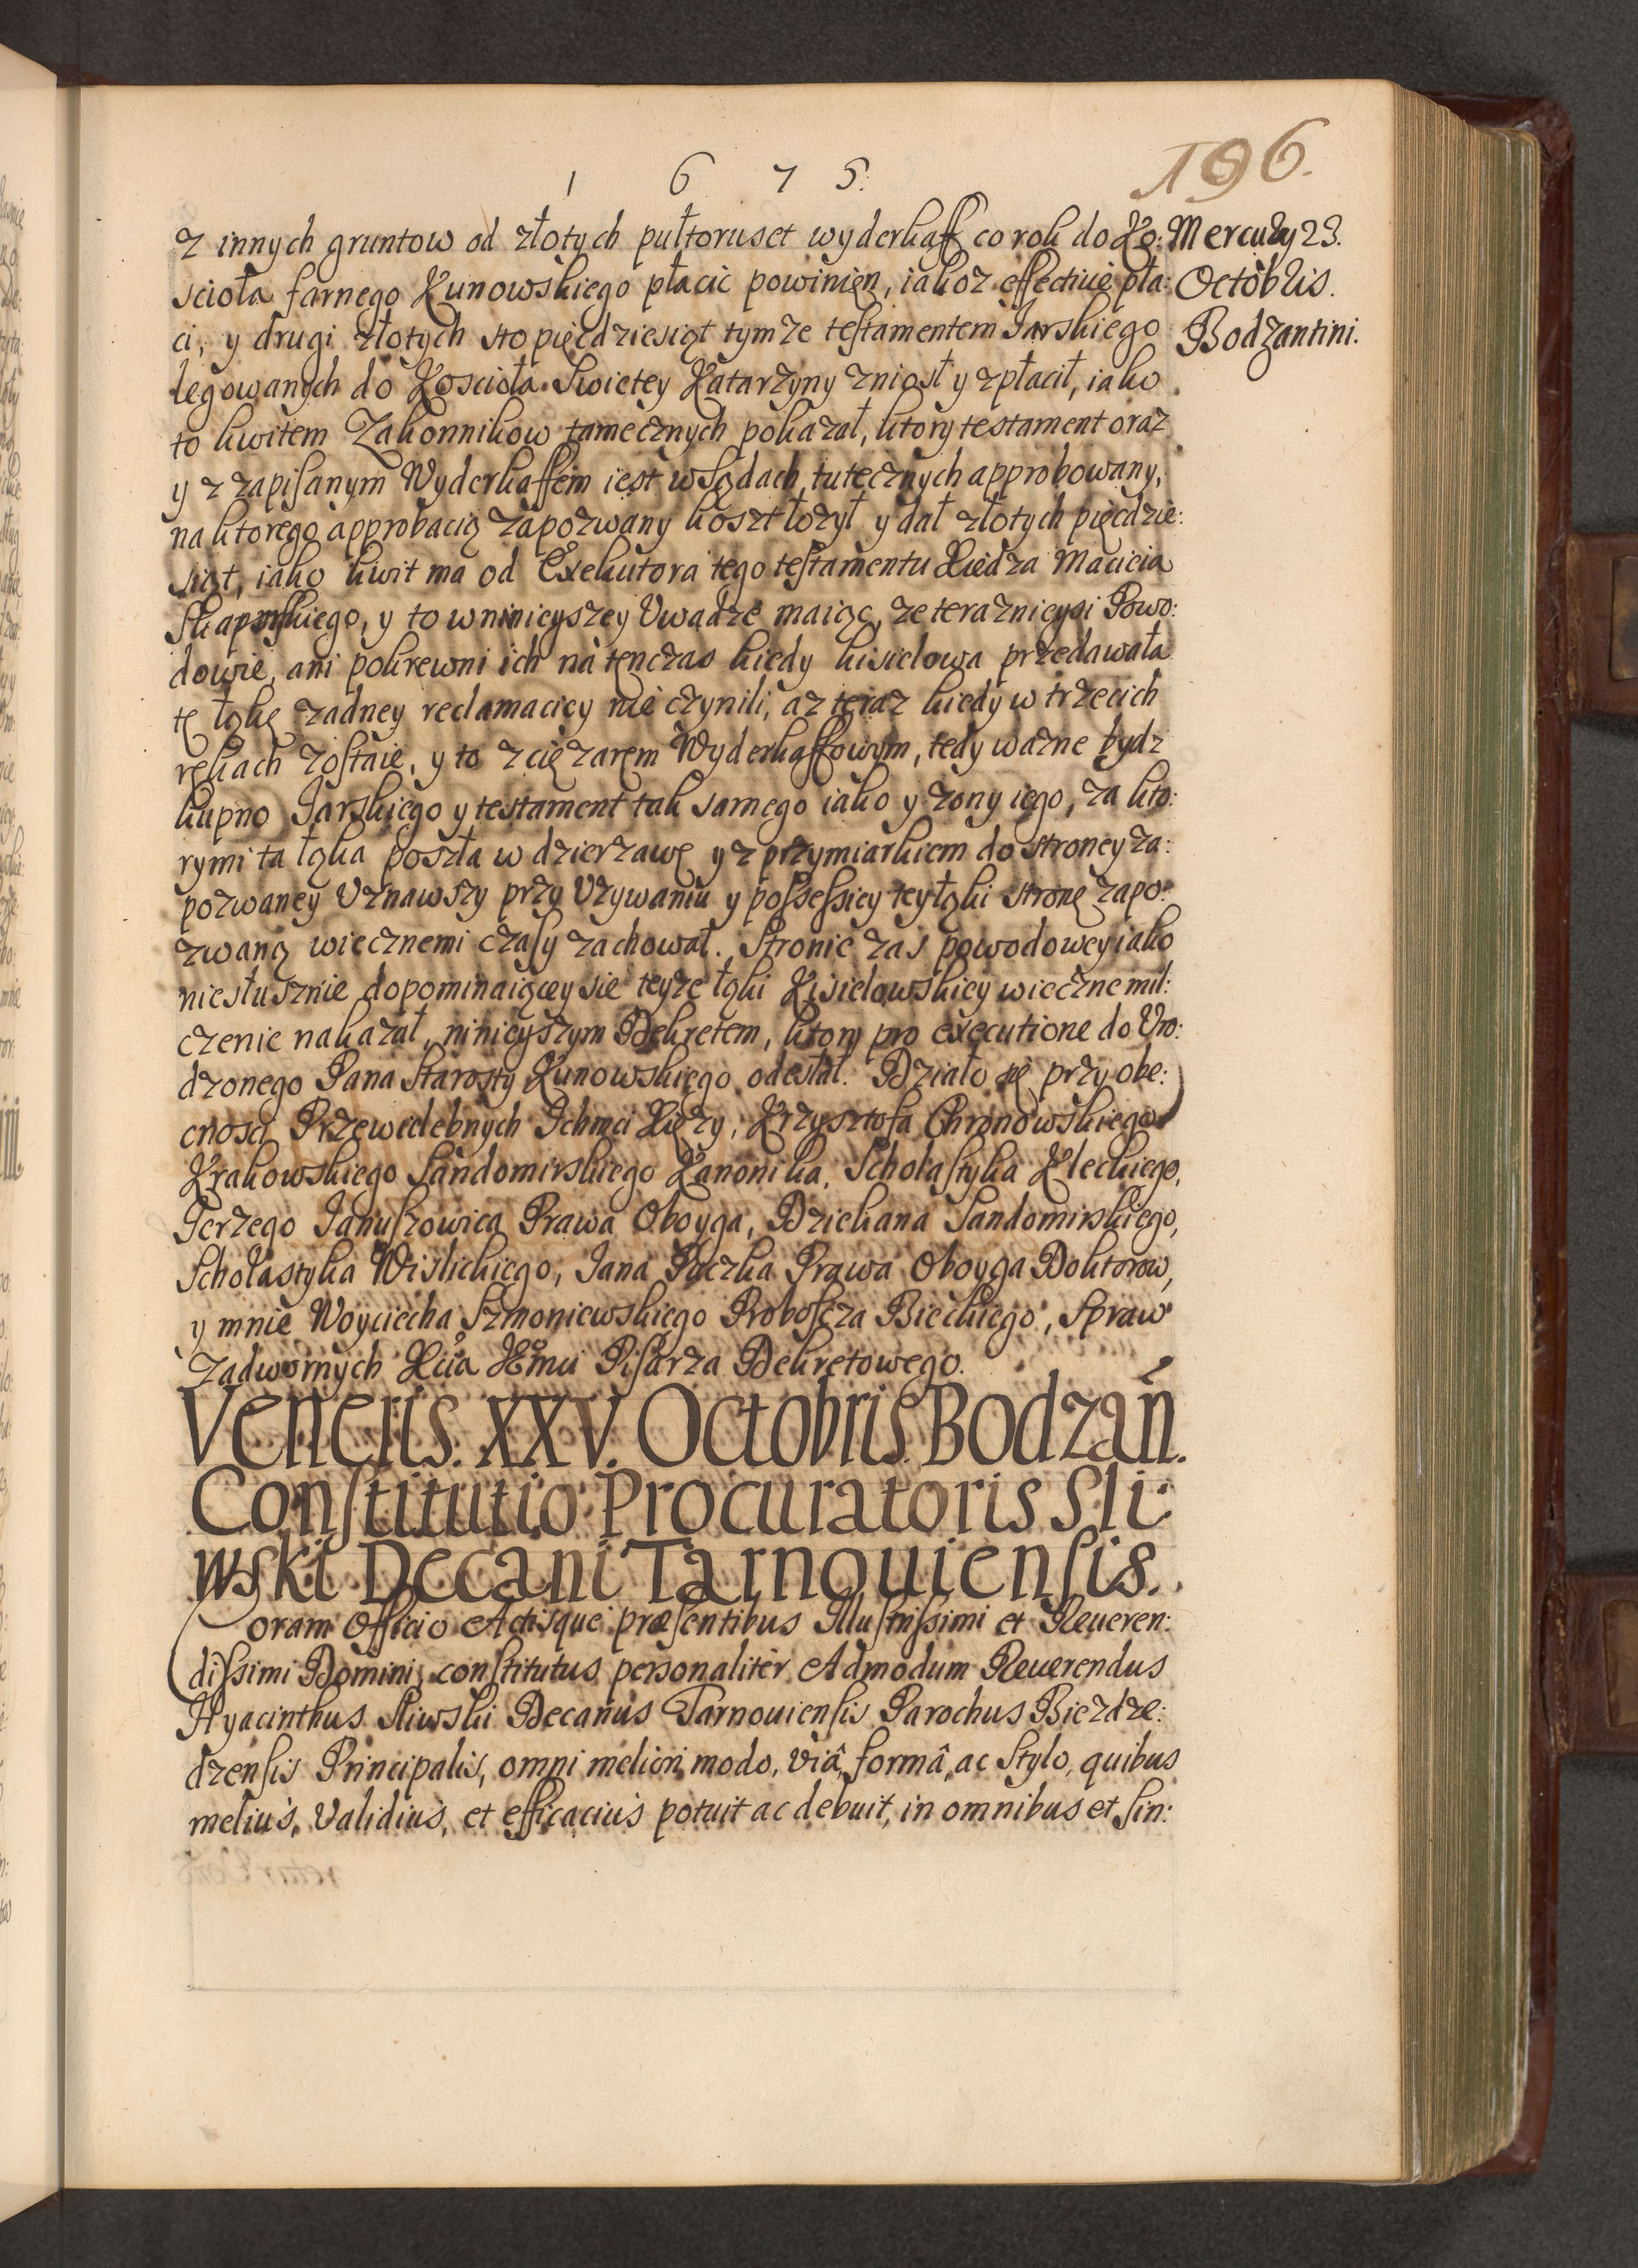 1 6 7 5.
196.
z innych gruntow od złotych pułtoruset wyderkaff co rok do Ko:
Mercurij 23.
Octobris.
Bodzantini.
scioła farnego Kunowskiego płacic powinien, iakoż effectiue pła:
ci, y drugi złotych sto pięcdziesiąt tymze testamentem Jarskiego
legowanych do Koscioła Swietey Katarzyny zniosł y zpłacił, iako
to kwitem Zakonnikow tamecznych pokazał, ktory testament oraz
y z zapisanym Wyderkaffem iest w Sądach tutecznych approbowany,
na ktorego approbacią zapozwany koszt łozył y dał złotych pięcdzie:
siąt, iako kwit ma od Exekutora tego testamentu Xiedza Macieia
y to w ninieyszey Uwadze maiąc, ze teraznieysi Powo:
dowie, ani pokrewni ich na tenczas kiedy kisielowa przedawała
tę łąkę zadney reclamaciey nie czynili, az teraz kiedy w trzecich
rękach zostaie, y to z cięzarem Wyderkaffowym, tedy wazne bydz
kupno Jarskiego y testament tak samego iako y zony iego, za kto:
rymi ta łąka poszła w dzierzawę y z przymiarkiem do stroney za:
pozwaney Uznawszy przy Uzywaniu y possessiey tey łąki stronę zapo:
zwaną wiecznemi czasy zachował. Stronie zas powodowey iako
niesłusznie dopominaiącey sie teyze łąki Kisielowskiey wieczne mil:
czenie nakazał, ninieyszym Dekretem, ktory pro executione do Vro:
dzonego Pana Starosty Kunowskiego odesłał. Działo się przy obe:
cnosci Przewielebnych Ichmci Xięzy, Krzysztofa Chronowskiego
Krakowskiego Sandomirskiego Kanonika, Scholastyka Kleckiego,
Jerzego Januszowica Prawa Oboyga, Dziekana Sandomirskiego,
Scholastyka Wislickiego, Jana Paczka Prawa Oboyga Doktorow,
y mnie Woyciecha Szmoniewskiego Proboscza Bieckiego, Spraw
Zadwornych Xcia Jmci Pisarza Dekretowego.
Veneris. XXV. Octobris. Bodzan̄.
Constitutio Procuratoris Sli:
wski Decani Tarnouiensis.
Coram Officio Actisque præsentibus Illustrissimi et Reueren:
dissimi Domini, constitutus personaliter Admodum Reuerendus
Hyacinthus Sliwski Decanus Tarnouiensis Parochus Biezdze:
dzensis Principalis, omni meliori modo, viâ, formâ, ac Stylo, quibus
melius, Validius, et efficacius potuit ac debuit, in omnibus et sin: